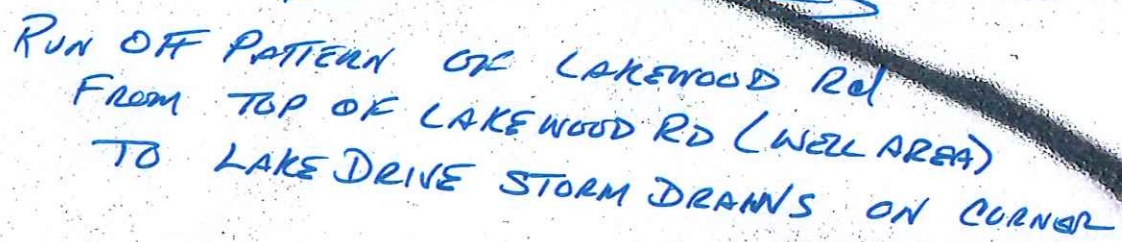 RUN OFF PATTERN OF LAKEWOOD Rd
FROM TOP OF LAKEWOOD RD (WELL AREA)
TO LAKE DRIVE STORM DRAINS ON CORNER